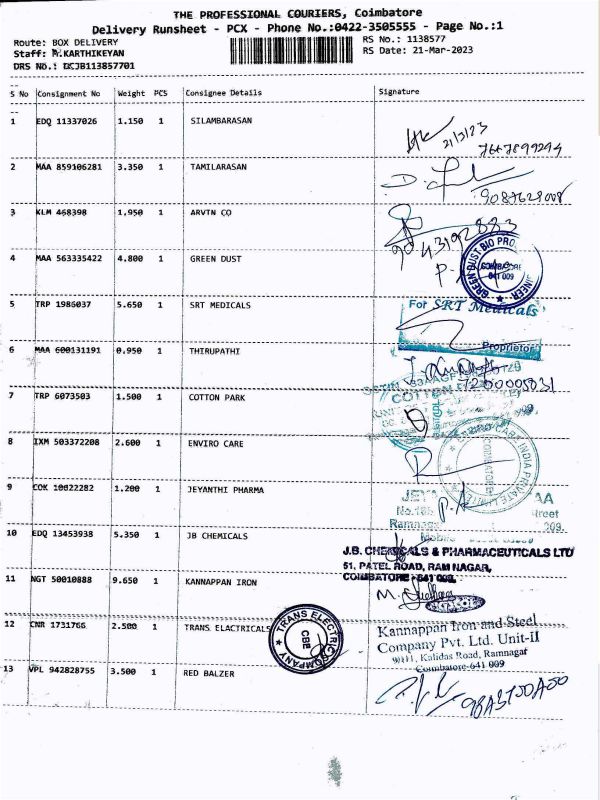 THE PROFESSIONAL COURIERS, Coimbatore
Delivery Runsheet - PCX - Phone No.:0422-3505555 - Page No.:1
Route: BOX DELIVERY
RS No.: 1138577
Staff: M.KARTHIKEYAN
RS Date: 21-Mar-2023
DRS No.: DCJB113857701
S No Consignment No Weight PCS Consignee Details Signature
1 EDQ 11337026 1.150 1 SILAMBARASAN
21/3/23
7667899294
2 MAA 859106281 3.350 1 TAMILARASAN
9087628008
3 KLM 468398 1.950 1 ARVTN CO
4 MAA 563335422 4.800 1 GREEN DUST
GREEN DUST BIO PRO
COIMBATORE
641 009
5 TRP 1986037 5.650 1 SRT MEDICALS
For SRT Medicals
Proprietor
6 MAA 600131191 0.950 1 THIRUPATHI
7200005031
7 TRP 6073503 1.500 1 COTTON PARK
COTTON
8 IXM 503372208 2.600 1 ENVIRO CARE
ENVIRO CARE INDIA PRIVATE LIMITED
COIMBATORE
9 COK 10022282 1.200 1 JEYANTHI PHARMA
Mobile
10 EDQ 13453938 5.350 1 JB CHEMICALS
J.B. CHEMICALS & PHARMACEUTICALS LTD
51, PATEL ROAD, RAM NAGAR,
COIMBATORE - 641 009.
11 NGT 50010888 9.650 1 KANNAPPAN IRON
12 CNR 1731766 2.500 1 TRANS ELACTRICALS
TRANS ELECTRIC COMPANY
CBE
Kannappan Iron and Steel
Company Pvt. Ltd. Unit-II
Kalidas Road, Ramnagar
Coimbatore-641 009
13 VPL 942828755 3.500 1 RED BALZER